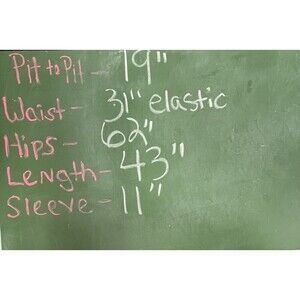 Pit to Pit - 19"
Waist - 31" elastic
Hips - 62"
Length - 43"
Sleeve - 11"